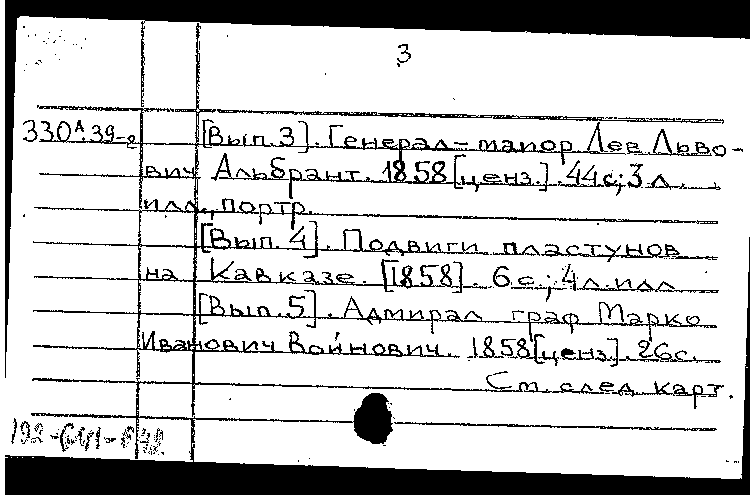 3
330А.39-2 [Вып. 3]. Генерал-майор Лев Льво-
вич Альбрант. 1858 [ценз.]. 44 с; 3 л.
илл., портр.
[Вып. 4]. Подвиги пластунов
на Кавказе. [1858]. 6 с.; 4 л. илл
[Вып. 5]. Адмирал граф Марко
Иванович Войнович. 1858 [ценз]. 26 с.
См. след. карт.